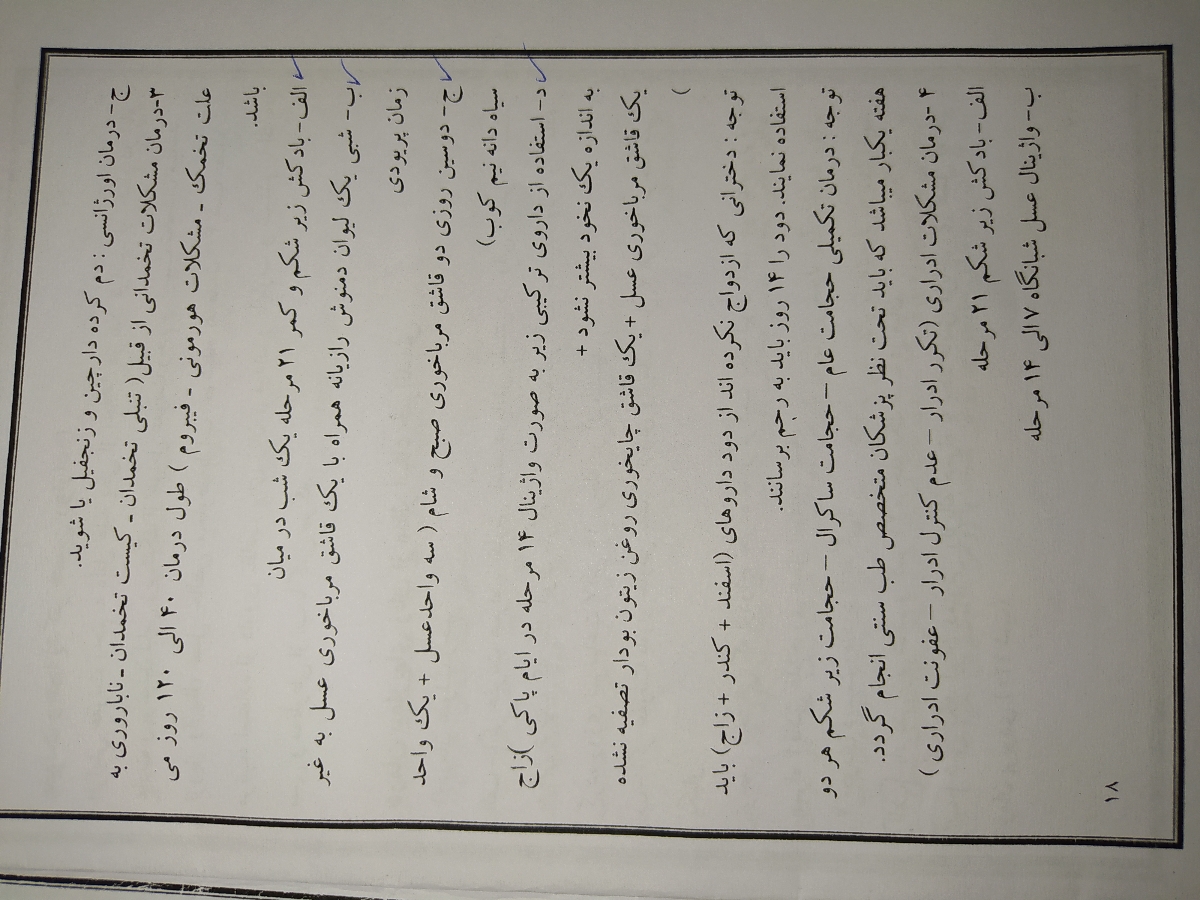 ج- درمان اورژانسی : دم کرده دارچین و زنجفیل یا شوید.
۳-درمان مشکلات تخمدانی از قبیل( تنبلی تخمدان - کیست تخمدان - ناباروری به
علت تخمک - مشکلات هورمونی - فیبروم ) طول درمان ۴۰ الی ۱۲۰ روز می
باشد.
الف - بادکش زیر شکم و کمر ۲۱ مرحله یک شب در میان
ب- شبی یک لیوان دمنوش رازیانه همراه با یک قاشق مرباخوری عسل به غیر
زمان پریودی
ج - دوسین روزی دو قاشق مرباخوری صبح و شام ( سه واحدعسل + یک واحد
سیاه دانه نیم کوب)
د- استفاده از داروی ترکیبی زیر به صورت واژینال ۱۴ مرحله در ایام پاکی )زاج
به اندازه یک نخود بیشتر نشود +
یک قاشق مرباخوری عسل + یک قاشق چایخوری روغن زیتون بودار تصفیه نشده
)
توجه : دخترانی که ازدواج نکرده اند از دود داروهای (اسفند + کندر + زاج) باید
استفاده نمایند. دود را ۱۴ روز باید به رحم برسانند.
توجه : درمان تکمیلی حجامت عام – حجامت ساکرال – حجامت زیر شکم هر دو
هفته یکبار میباشد که باید تحت نظر پزشکان متخصص طب سنتی انجام گردد.
۴ -درمان مشکلات ادراری (تکرر ادرار – عدم کنترل ادرار – عفونت ادراری )
الف - بادکش زیر شکم ۲۱ مرحله
ب - واژینال عسل شبانگاه ۷ الی ۱۴ مرحله
۱۸